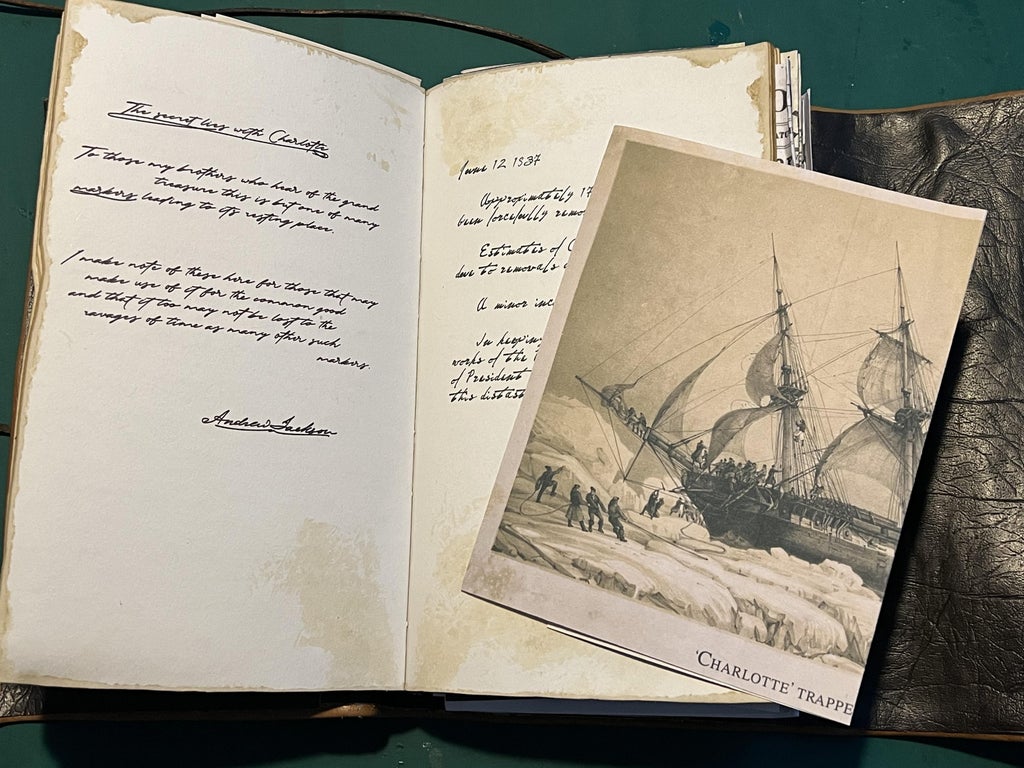 The secret lies with Charlotte
To those my brothers who hear of the grand
treasure this is but one of many
markers leading to its resting place.
I make note of these here for those that may
make use of it for the common good
and that it too may not be lost to the
ravages of time as many other such
markers.
Andrew Jackson
June 12 1837
Approximately 17
been forcefully remo
Estimates of C
due to removals a
A minor inc
In keeping
works of the
of President
this distast
'CHARLOTTE' TRAPPE